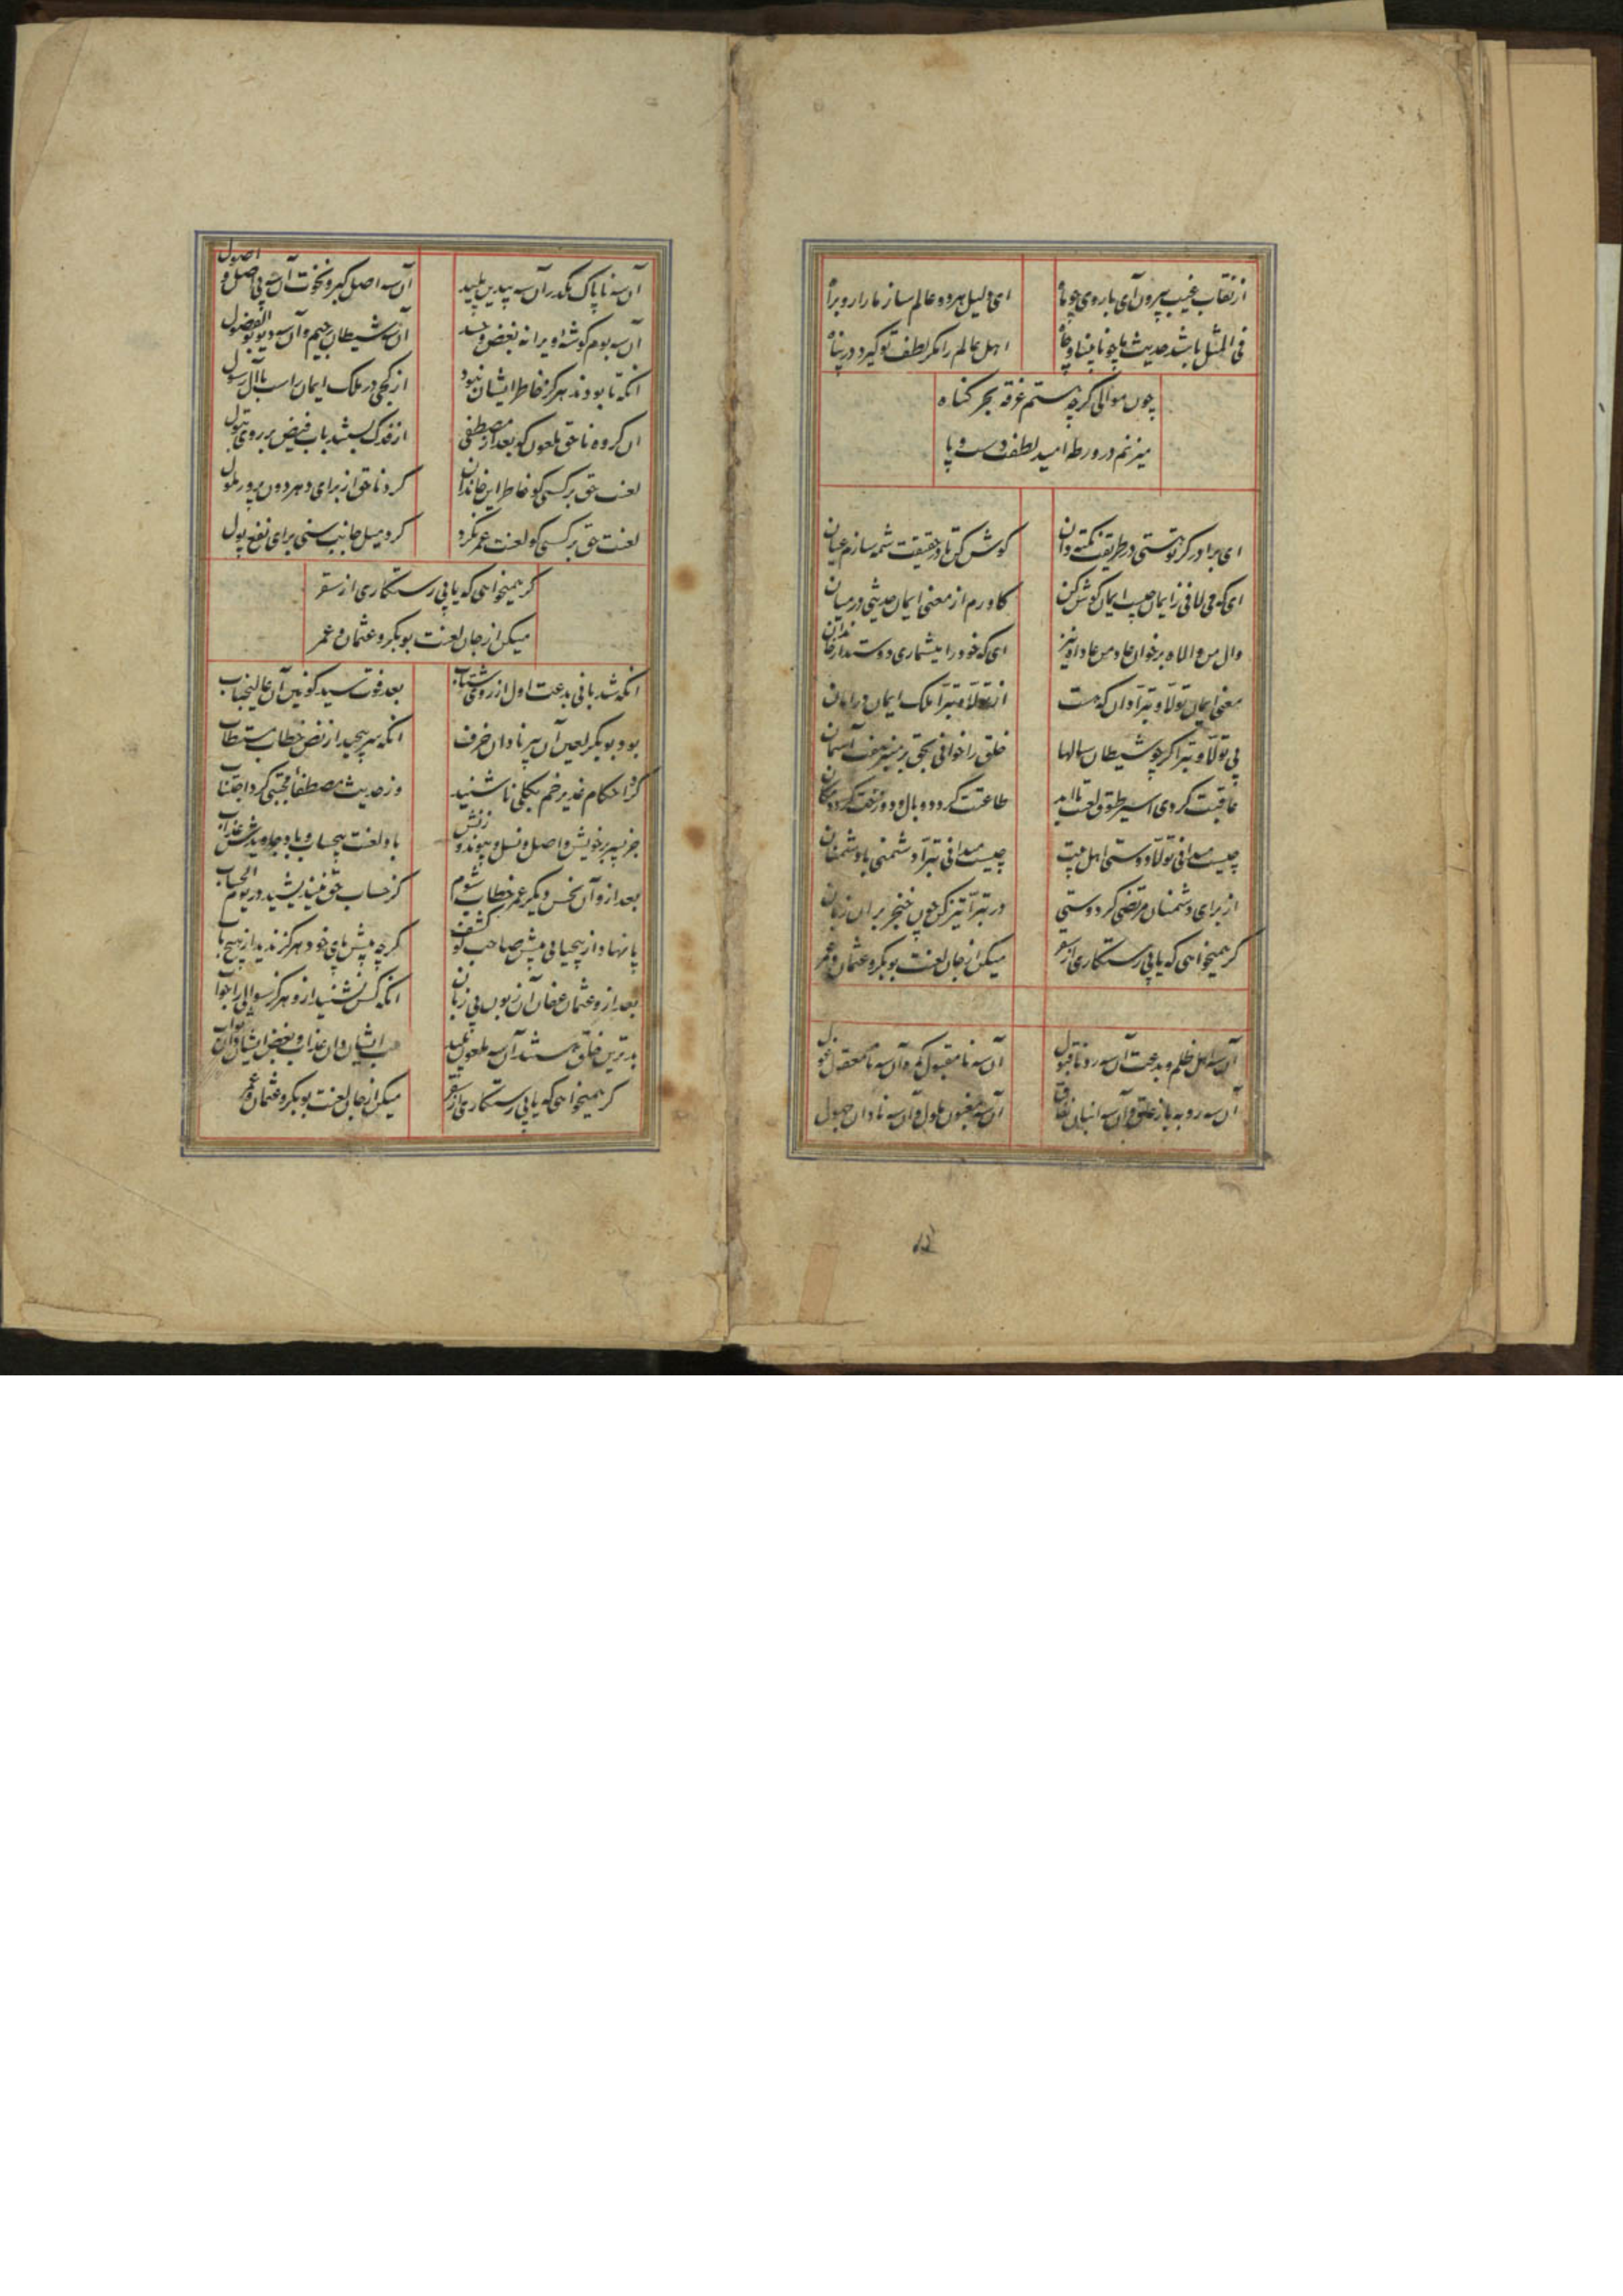 از نقاب غیب بیرون آی با روی چو ماه
ای دلیل هر دو عالم ساز ما را رو براه
فی المثل باشد حدیث ما چو نابینا و چاه
اهل عالم را مگر لطف تو گیرد در پناه
چون موالی گرچه هستم غرقه بحر گناه
میزنم در ورطه امید لطفت دست و پا
ای برادر گر تو هستی در طریقت نکته دان
گوش کن تا در حقیقت شمه سازم عیان
ای که می لافی ز ایمان چیست ایمان گوش کن
کاورم از معنی ایمان حدیثی در میان
وال من والاه برخوان عاد من عاداه نیز
ای که خود را میشماری دوستدار خاندان
معنی ایمان تولا و تبرا دان که هست
از تولا و تبرا ملک ایمان در امان
بی تولا و تبرا گر چو شیطان سالها
خلق را خوانی بحق بر منبر هفت آسمان
عاقبت گردی اسیر طوق لعنت تا ابد
طاعتت گردد وبال و دوزخت گردد مکان
چیست میدانی تولا دوستی اهل بیت
چیست میدانی تبرا دشمنی با دشمنان
از برای دشمنان مرتضی گر دوستی
در تبرا تیز کن چون خنجر بران زبان
گر همیخواهی که یابی رستکاری از سقر
میکن از جان لعنت بوبکر و عثمان و عمر
آن سه اهل ظلم و بدعت آن سه رد ناقبول
آن سه نامقبول و آن سه نامعقول
آن سه روبه باز و آن سه انبان نفاق
آن سه مغبون ملول و آن سه نادان جهول
آن سه ناپاک مکدر آن سه بیدین پلید
آن سه اصل کبر و نخوت آن سه بی اصل و اصول
آن سه بوم گوشه ویرانه بغض و حسد
آن سه شیطان رجیم و آن سه دیو بوالفضول
آنکه تا بودند هرگز خاطر ایشان نبود
از کجی در ملک ایمان راست با آل رسول
آن گروه ناحق ملعون که بعد از مصطفی
از فدک بستند باب فیض بر روی بتول
لعنت حق بر کسی کو خاطر این خاندان
کرد ناحق از برای دهر دون پرور ملول
لعنت حق بر کسی کو لعنت عمر نکرد
کرد میل جانب سنی برای نفع پول
گر همیخواهی که یابی رستکاری از سقر
میکن از جان لعنت بوبکر و عثمان و عمر
آنکه شد بانی بدعت اول از روی شتاب
بعد فوت سید کونین آن عالیجناب
بود بوبکر لعین آن پیر نادان خرف
آنکه سر پیچید از نص خطاب مستطاب
کرد احکام غدیر خم بکلی ناشنید
وز حدیث مصطفای مجتبی کرد اجتناب
جز پسر بر خویش و اصل و نسل و پیوند و زنش
باد لعنت بیحساب و باد جاویدش عذاب
بعد از و آن نحس دیگر عمر خطاب شوم
کز حساب حق نیندیشید در یوم الحساب
پا نهاد از بیحیائی پیش صاحب لو کشف
گرچه پیش پای خود هرگز ندید از هیچ باب
بعد از و عثمان عفان آن زبون بی زبان
آنکه کس نشنید از و هرگز سوالی را جواب
بدترین خلق هستند آن سه ملعون پلید
حب ایشان دان عذاب و بغض ایشان دان ثواب
گر همیخواهی که یابی رستکاری از سقر
میکن از جان لعنت بوبکر و عثمان و عمر